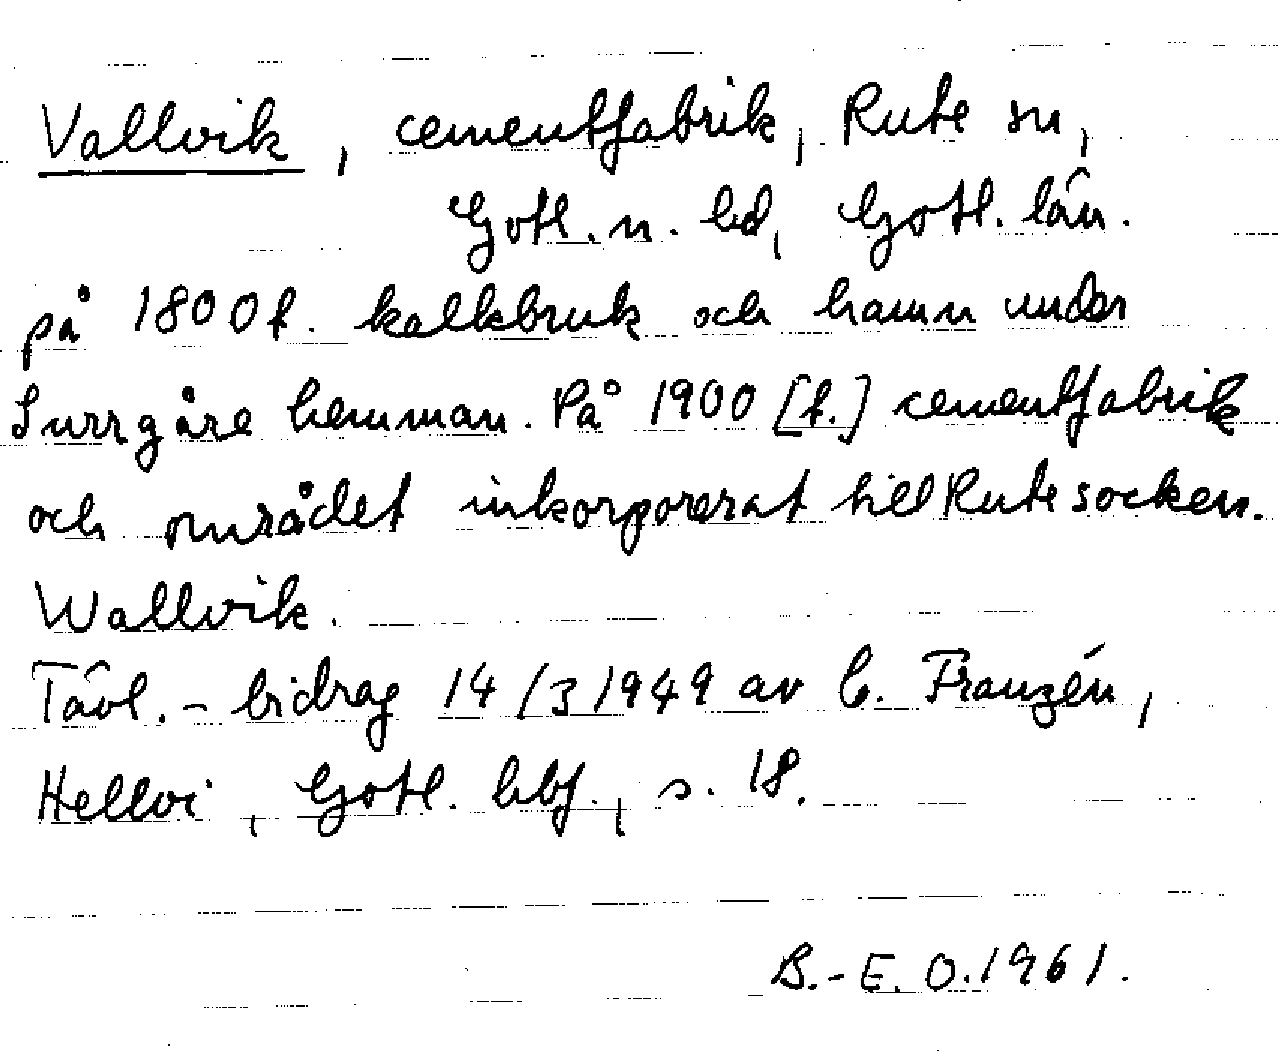 Vallvik, cementfabrik, Rute sn,
Gotl. n. hd, Gotl. län.
på 1800t. kalkbruk och hamn under
Surrgåre hemman. På 1900 [t.] cementfabrik
och området inkorporerat till Rute socken.
Wallvik.
Tävl.-bidrag 14/3 1949 av C. Franzén,
Hellvi, Gotl. hbf., s. 18.
B.-E. O. 1961.